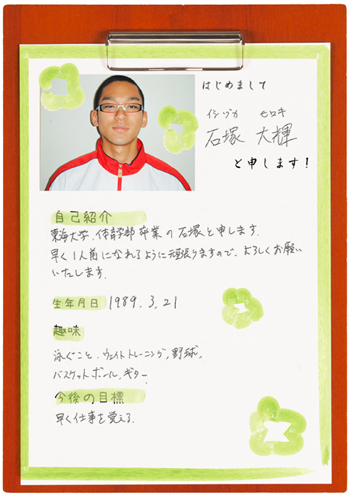 はじめまして
イシヅカ ヒロキ
石塚 大輝
と申します！
自己紹介
東海大学、体育学部卒業の石塚と申します。
早く1人前になれるように頑張りますので、よろしくお願い
いたします。
生年月日 1989.3.21
趣味
泳ぐこと、ウェイトトレーニング、野球、
バスケットボール、ギター
今後の目標
早く仕事を覚える。